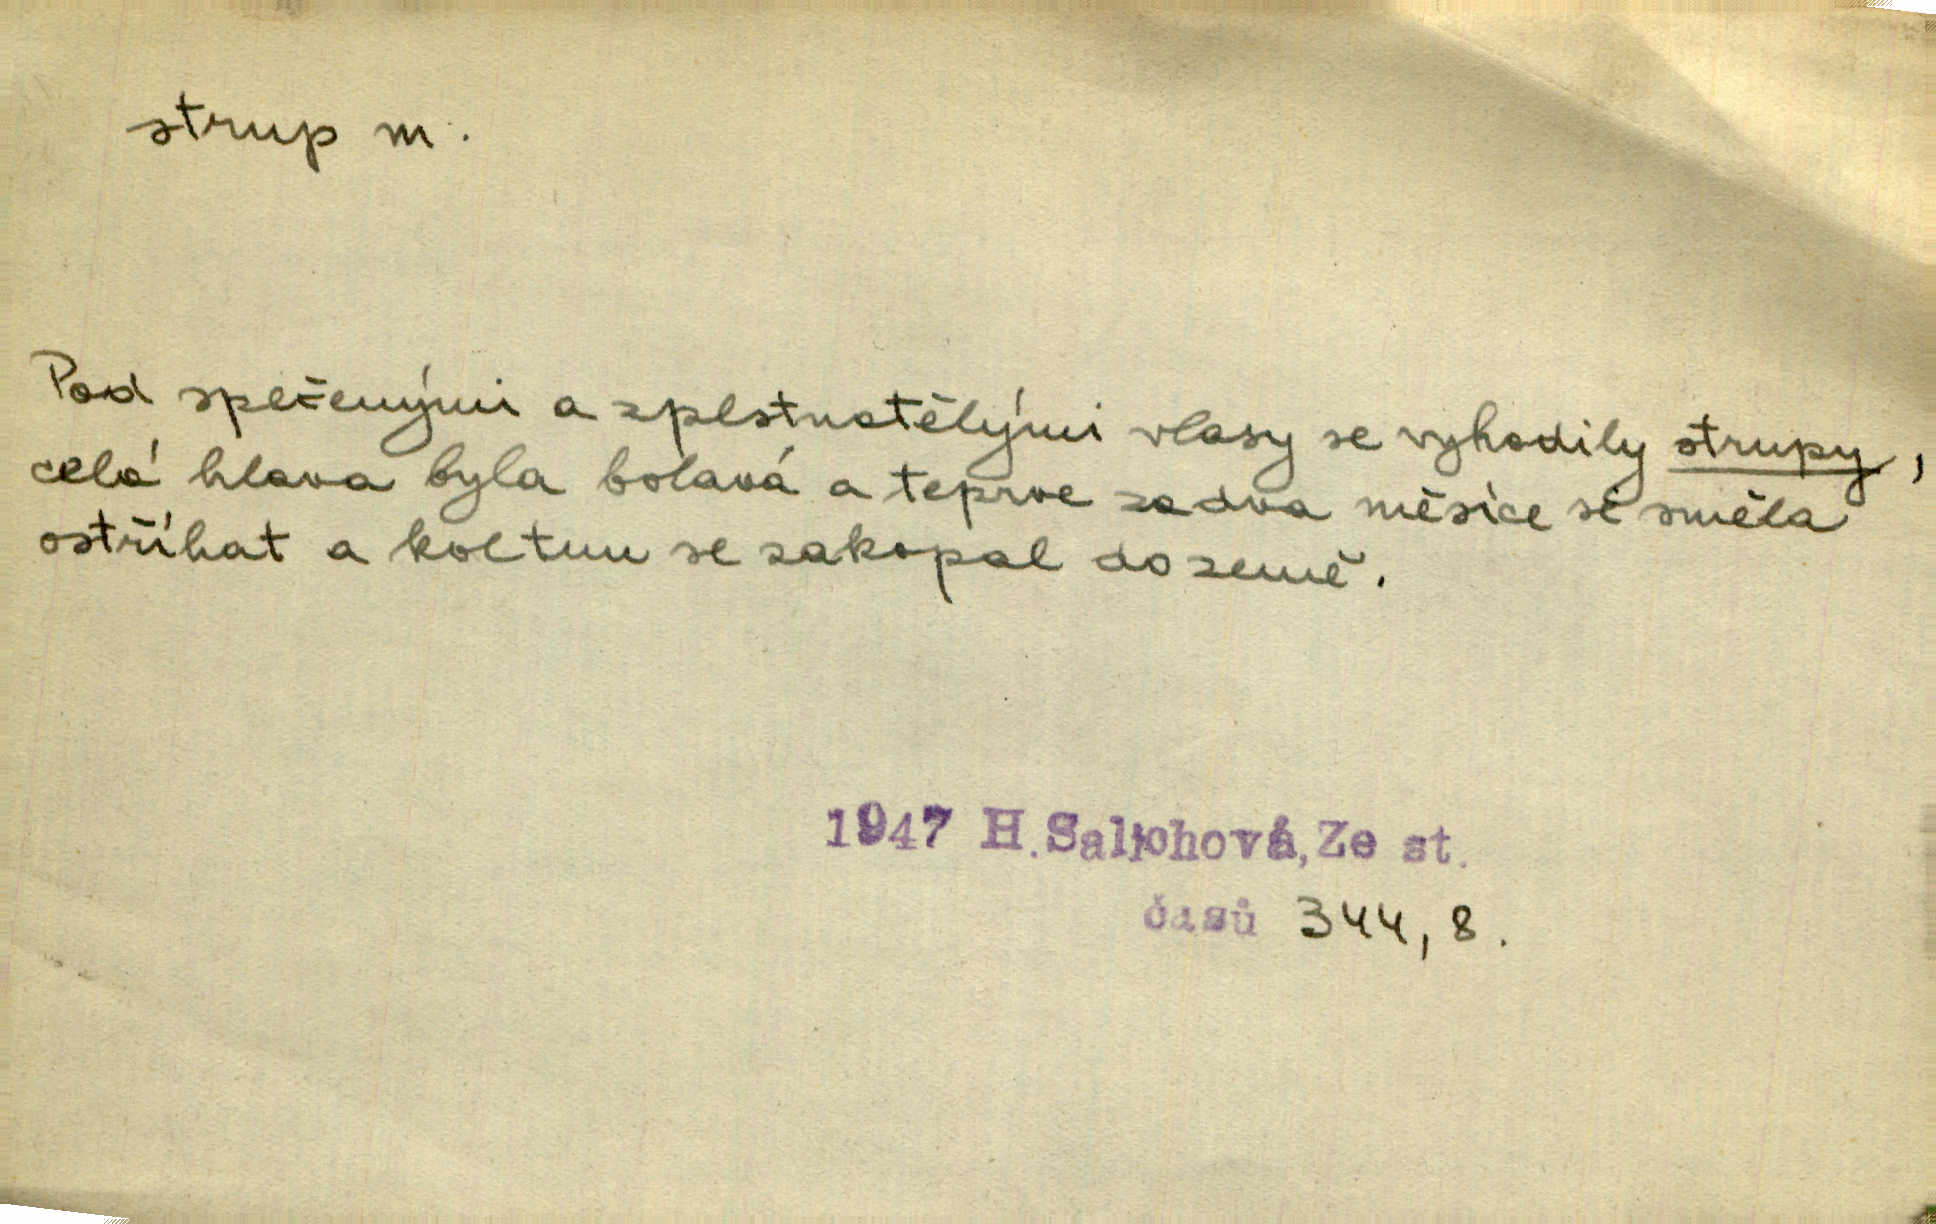 strup m.
Pod spečenými a zplstnatělými vlasy se vyhodily strupy,
celá hlava byla bolavá a teprve za dva měsíce se směla
ostříhat a koltun se zakopal do země.
1947 H.Salichová, Ze st.
časů 344, 8.